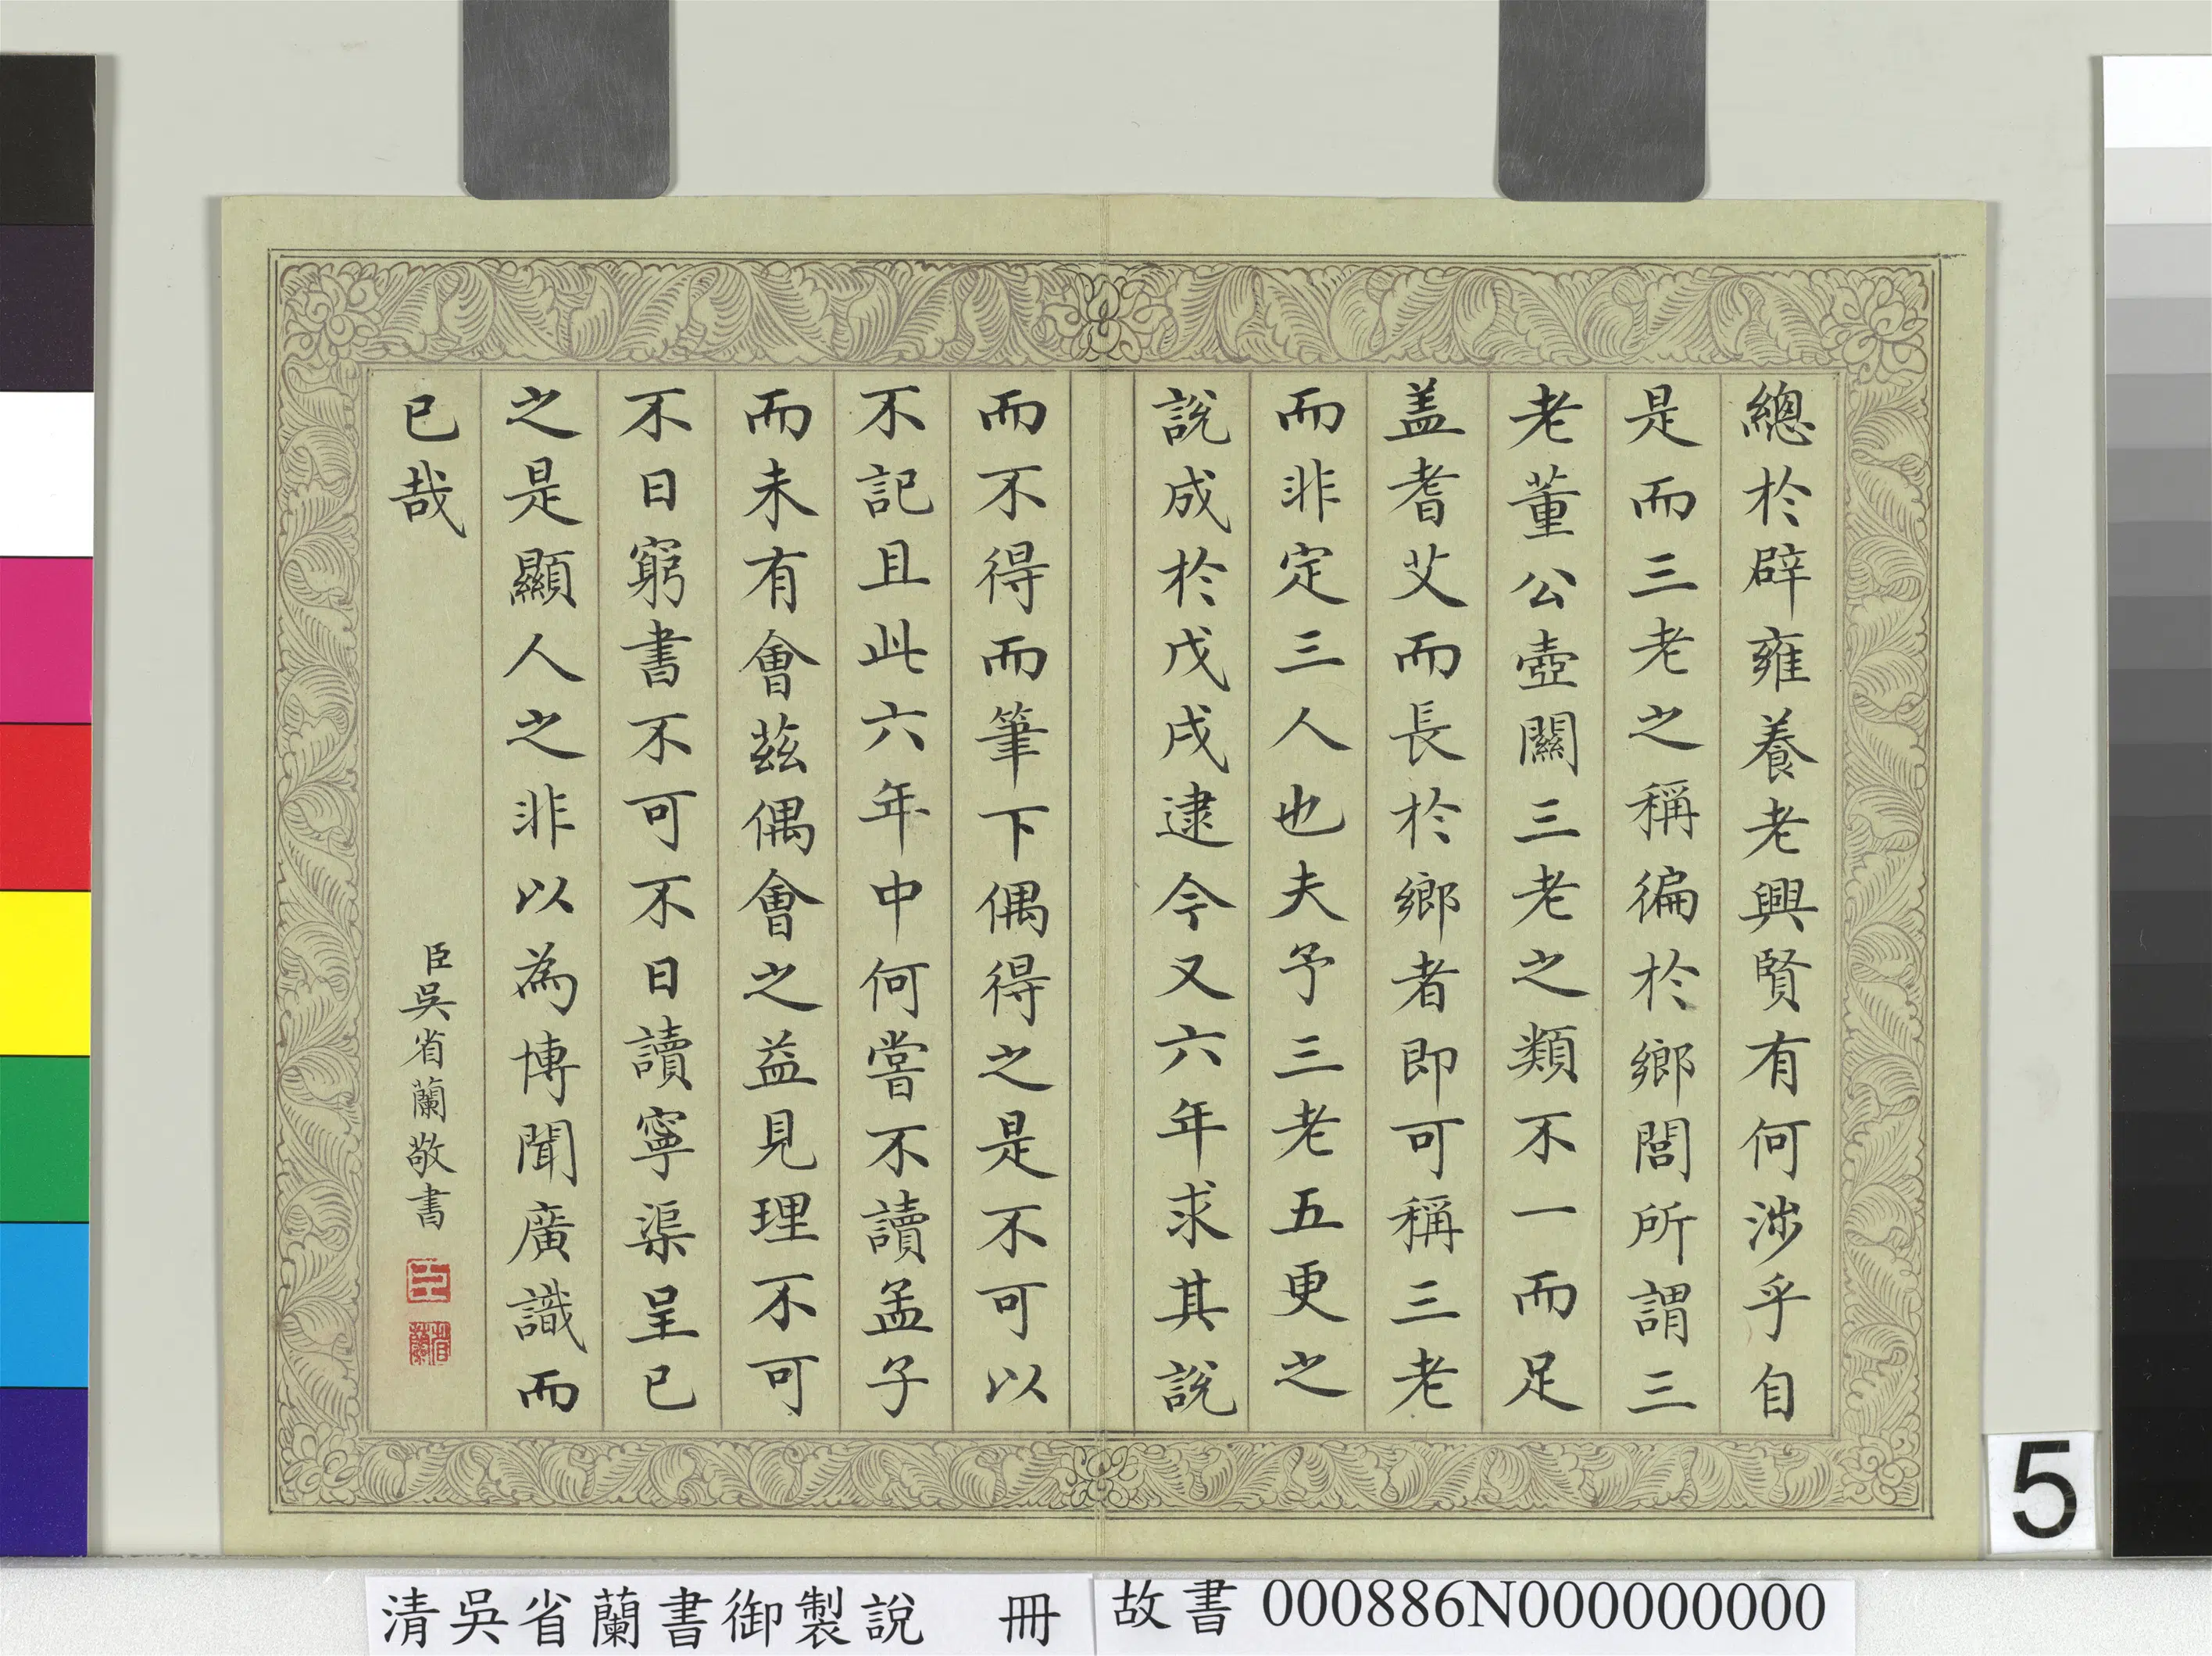 總於辟雍養老興賢有何涉乎自
是而三老之稱徧於鄉閭所謂三
老董公壺關三老之類不一而足
盖耆艾而長於鄉者即可稱三老
而非定三人也夫予三老五更之
說成於戊戌逮今又六年求其說
而不得而筆下偶得之是不可以
不記且此六年中何嘗不讀孟子
而未有會茲偶會之益見理不可
不日窮書不可不日讀寧渠呈已
之是顯人之非以為博聞廣識而
已哉
臣吳省蘭敬書
臣
省蘭
5
清吳省蘭書御製說 冊
故書 000886N000000000